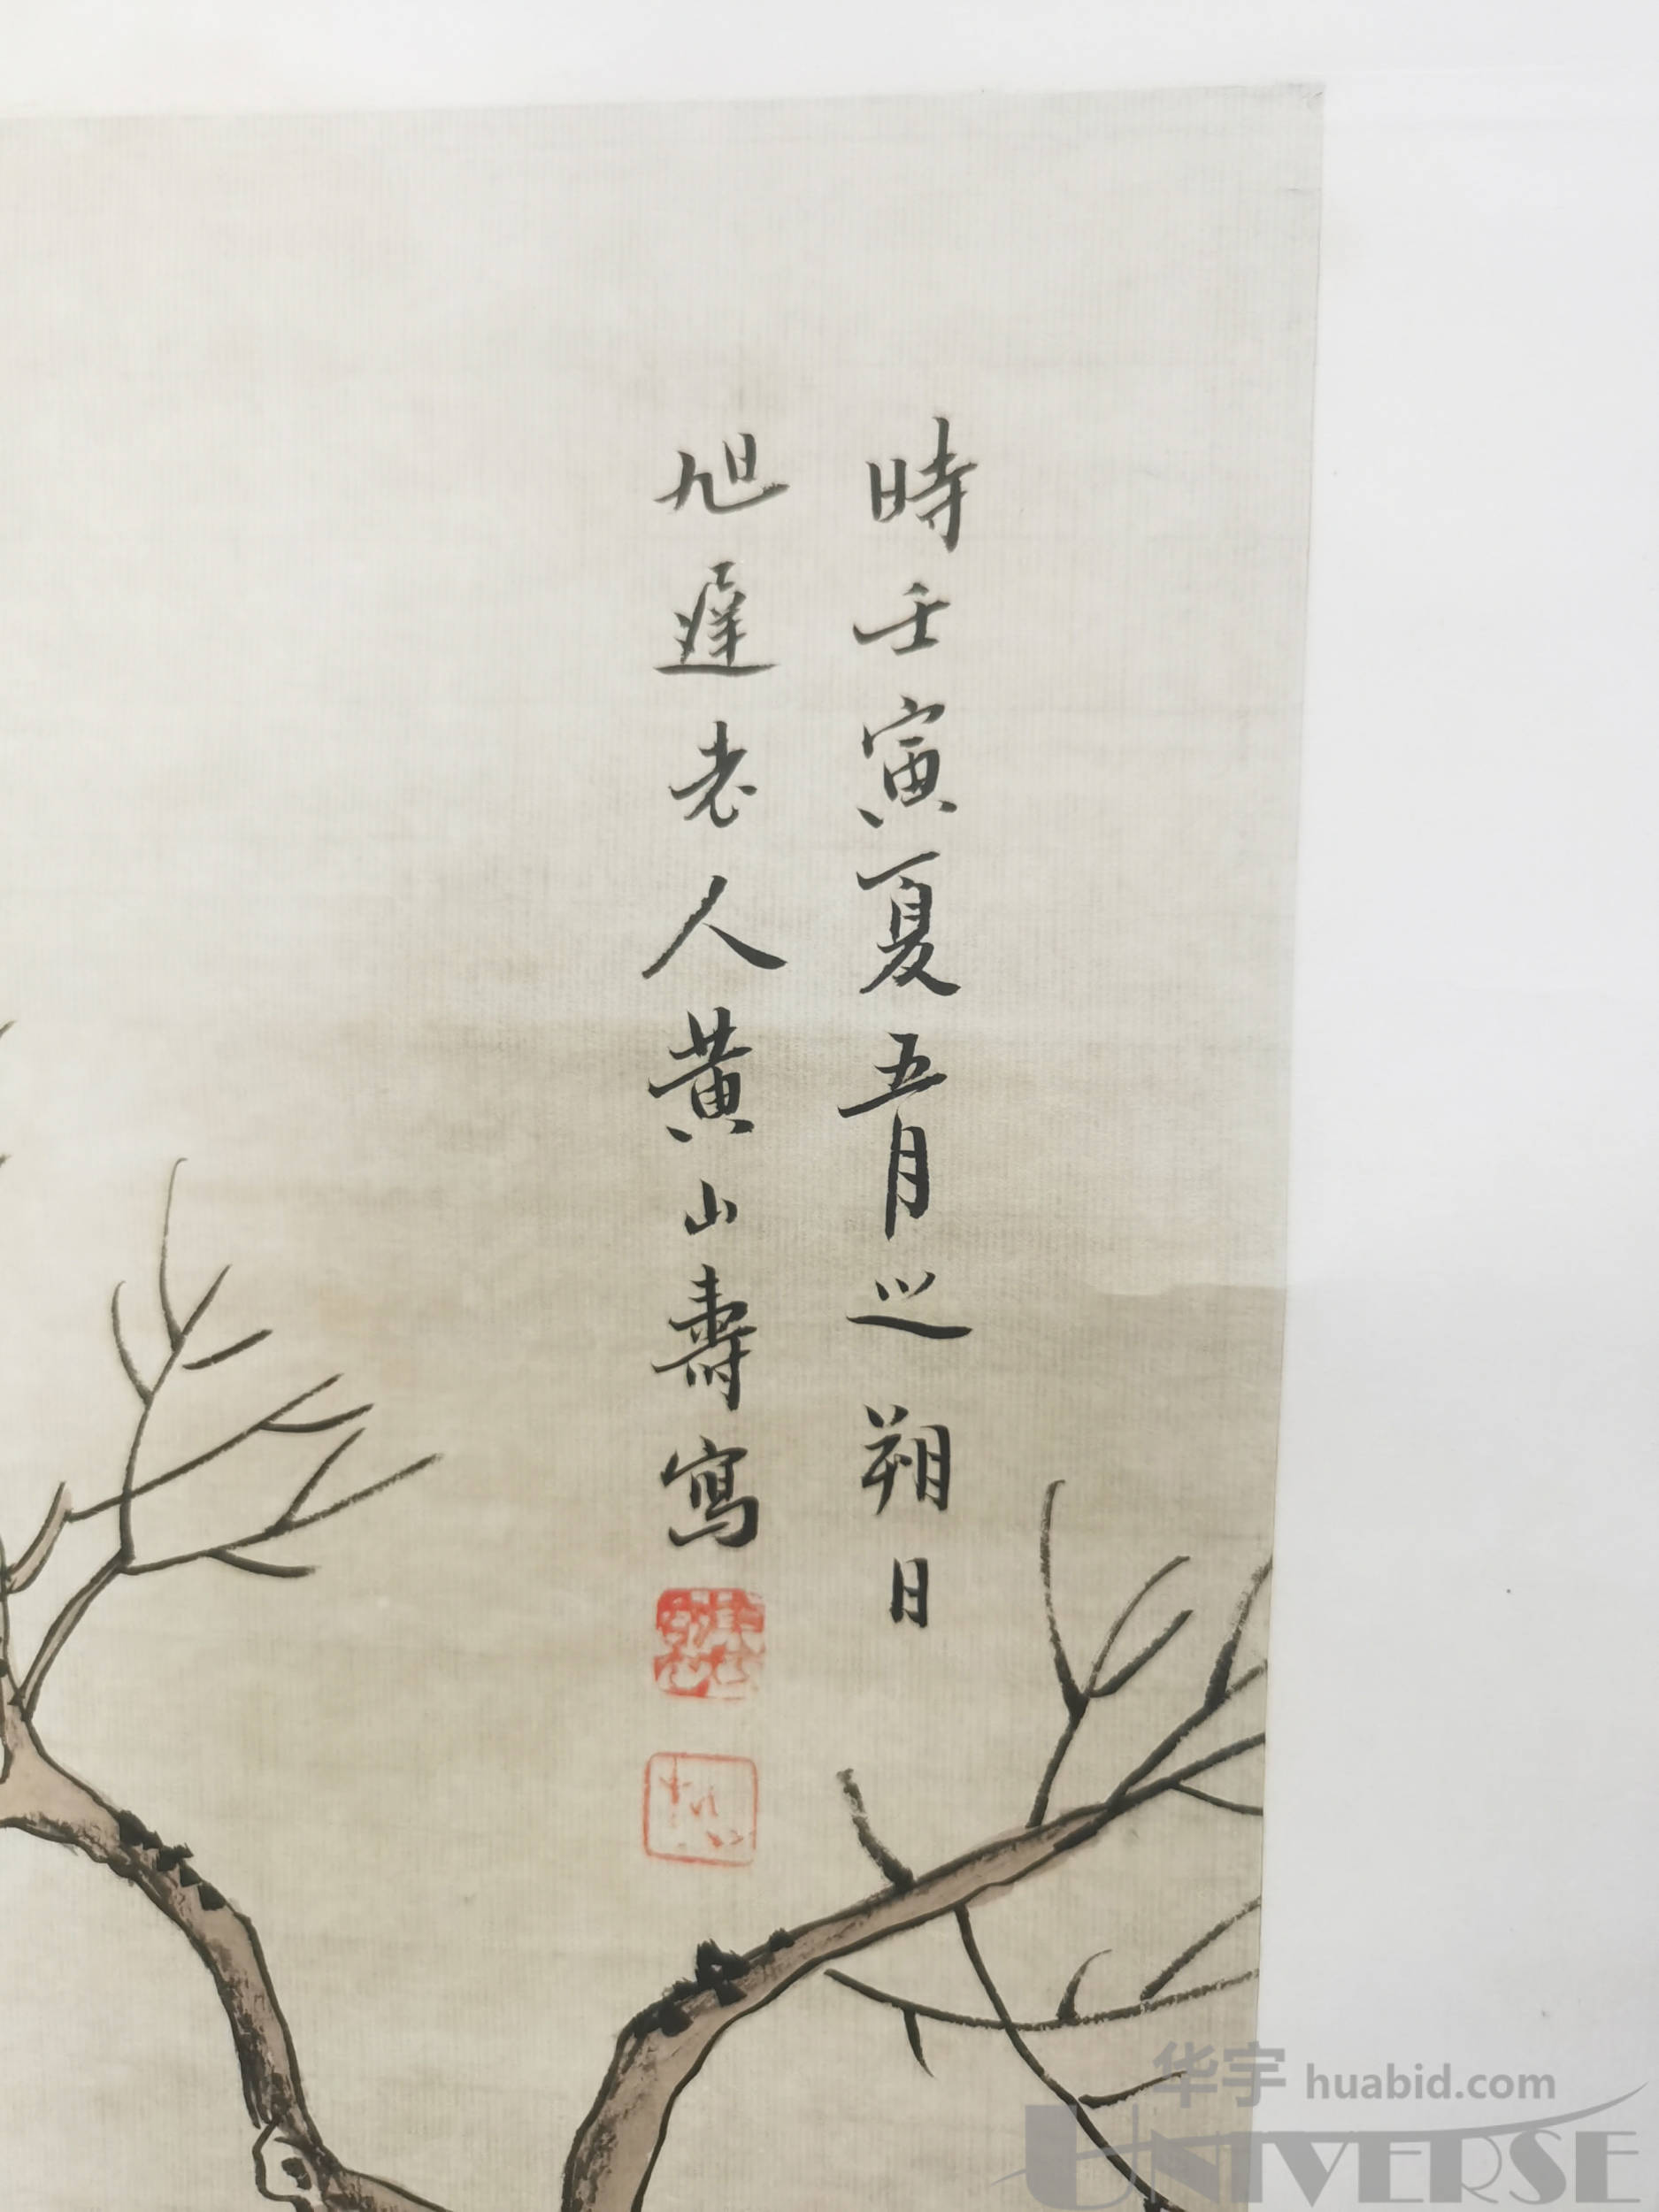 時壬寅夏五月之朔日
旭遲老人黃山壽寫
华宇 huabid.com
UNIVERSE